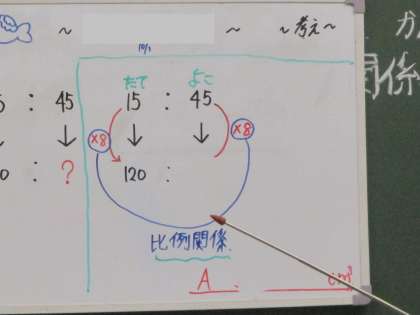 ~ ~ ~考え~
10/1
たて よこ
5 : 45 15 : 45
×8 ↓ ↓ ×8
0 : ? 120 :
関係
比例関係.
A. cm